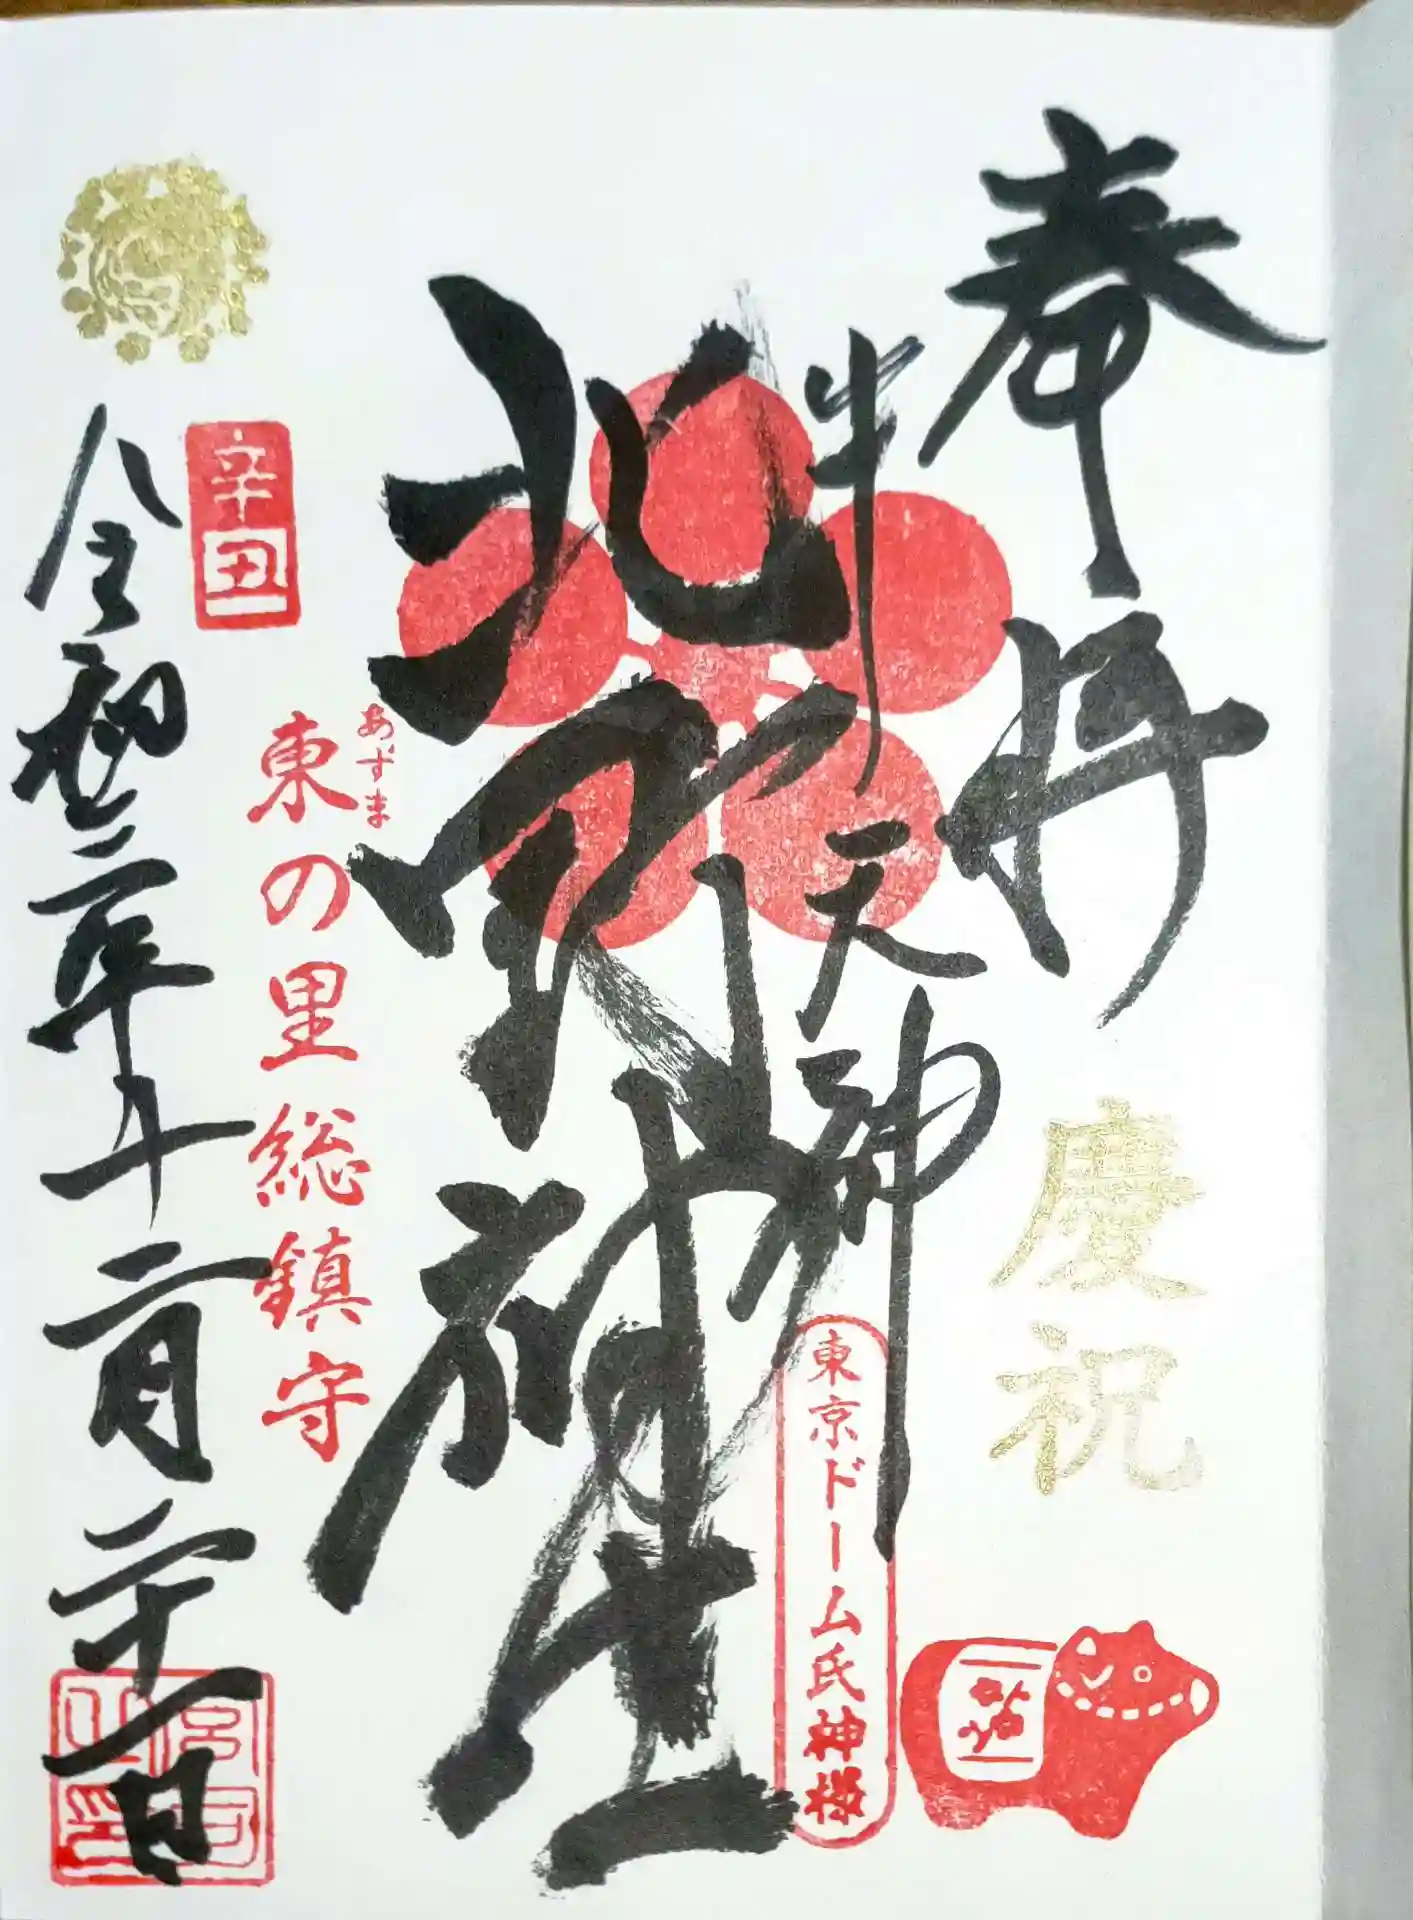 奉拝
慶祝
牛天神
北野神社
東京ドーム氏神様
あずま
東の里総鎮守
辛丑
令和三年十二月二十一日